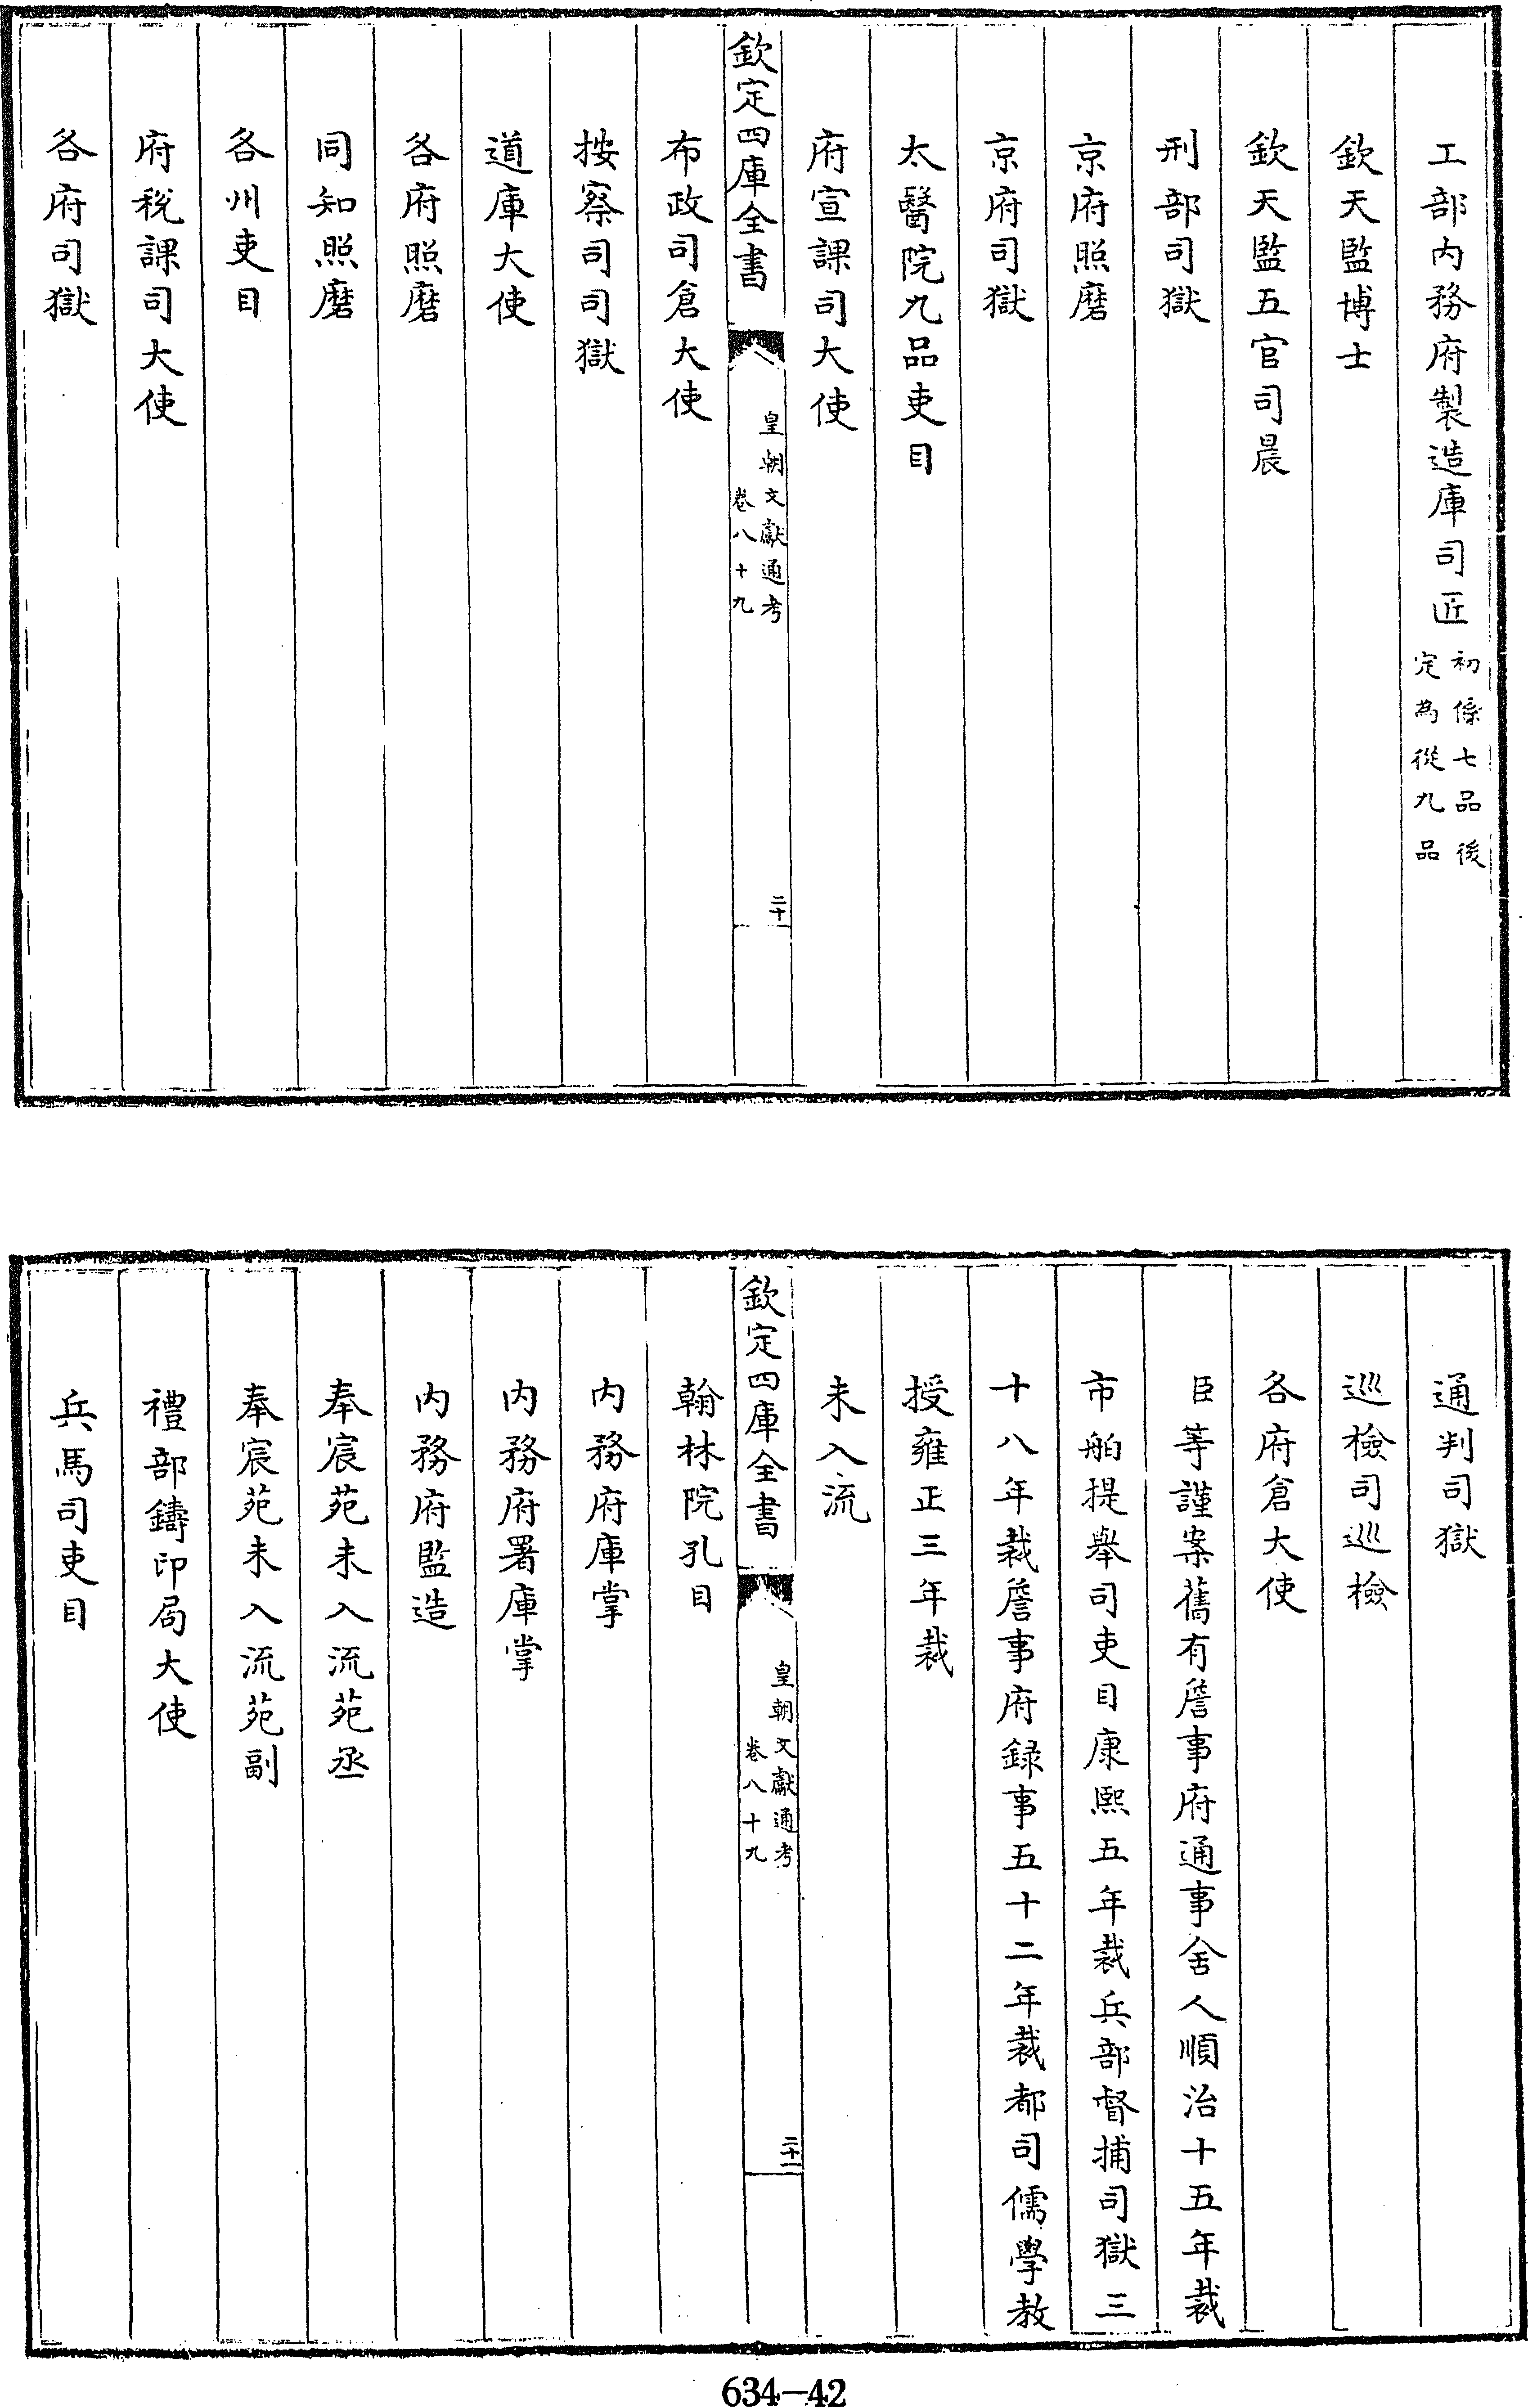 工部内務府製造庫司匠初係七品後定為從九品
欽天監博士
欽天監五官司晨
刑部司獄
京府照磨
京府司獄
太醫院九品吏目
府宣課司大使
欽定四庫全書
皇朝文獻通考
卷八十九
二十
布政司倉大使
按察司司獄
道庫大使
各府照磨
同知照磨
各州吏目
府税課司大使
各府司獄
通判司獄
巡檢司巡檢
各府倉大使
臣等謹案舊有詹事府通事舍人順治十五年裁
市舶提舉司吏目康熙五年裁兵部督捕司獄三
十八年裁詹事府録事五十二年裁都司儒學教
授雍正三年裁
未入流
欽定四庫全書
皇朝文獻通考
卷八十九
二十一
翰林院孔目
内務府庫掌
内務府署庫掌
内務府監造
奉宸苑未入流苑丞
奉宸苑未入流苑副
禮部鑄印局大使
兵馬司吏目
634-42